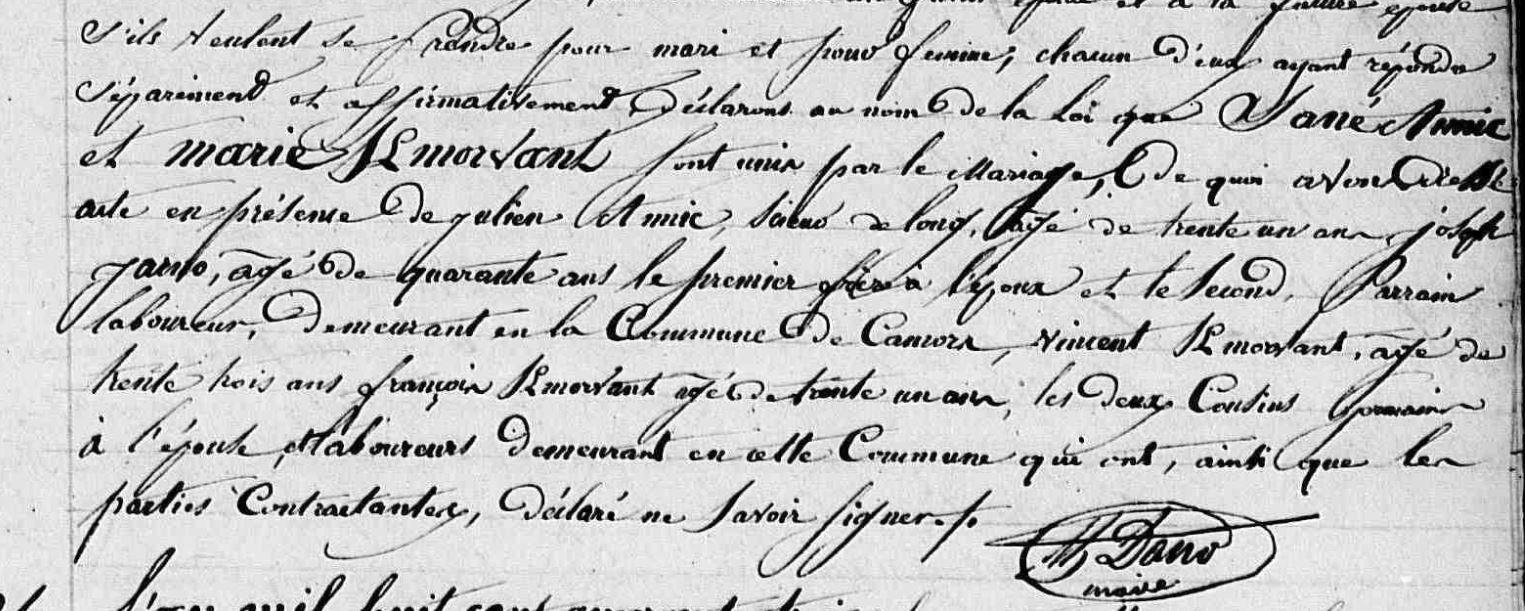 époux et à la future épouse
s'ils veulent se prendre pour mari et pour femme, chacun d'eux ayant répondu
séparément et affirmativement, déclarons au nom de la Loi que Jané Annic
et marie Kmorvant sont unis par le Mariage, de quoi avons dressé
acte en présense de julien Annic, sieur de long, agé de trente un ans, joseph
jarno, agé de quarante ans le premier frère à l'époux et le second, Parrain
laboureur, demeurant en la Commune de Camors, vincent Kmorvant, agé de
trente trois ans françois Kmorvant agé de trente un ans, les deux Cousins Germains
à l'épouse, et laboureurs demeurant en cette Commune qui ont, ainsi que les
parties Contractantes, déclaré ne savoir signer./.
Dano
maire
L'an mil huit cent